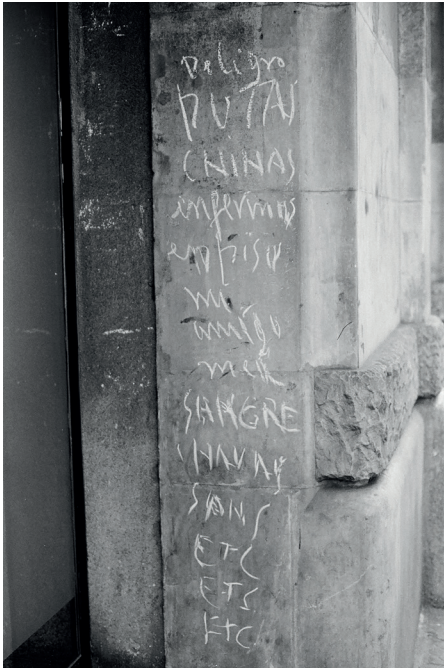 peligro
PUTAS
CHINAS
enfermas
en piso
mi
amigo
SANGRE
ETC
ETS
ETC